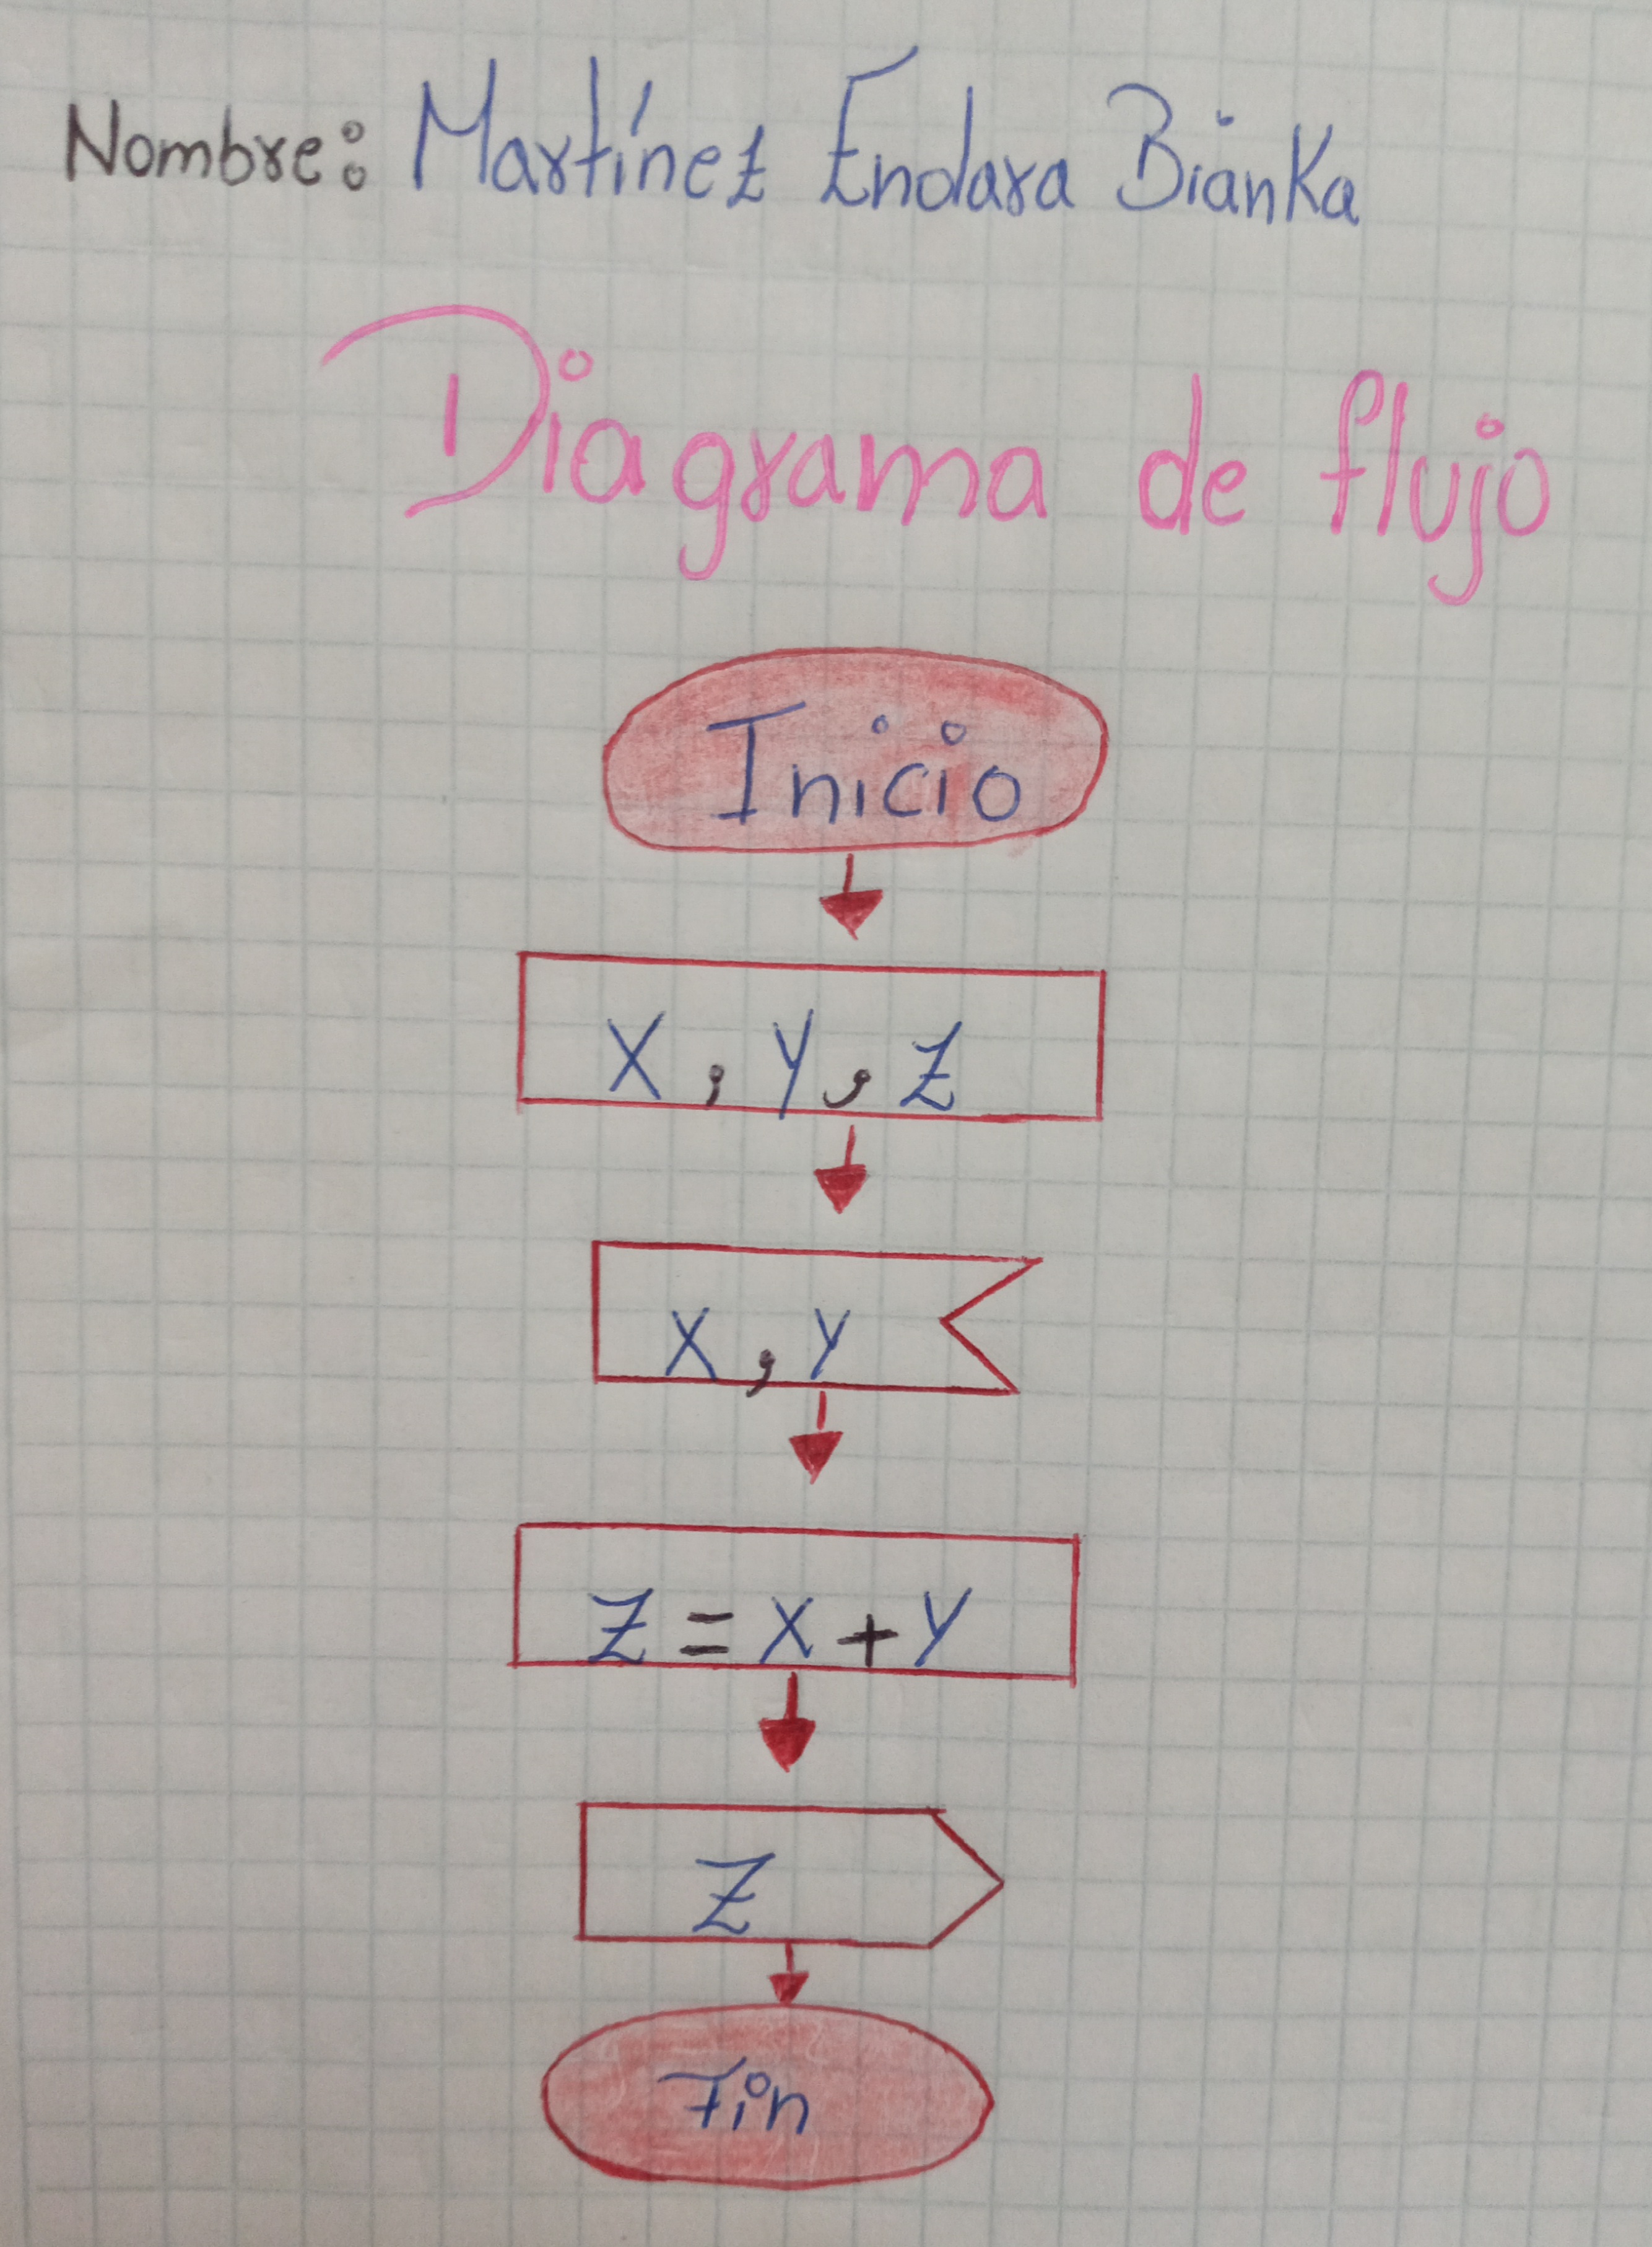 Nombre: Martínez Endara Bianka
Diagrama de flujo
Inicio
X, Y, Z
X, Y
Z = X + Y
Z
Fin